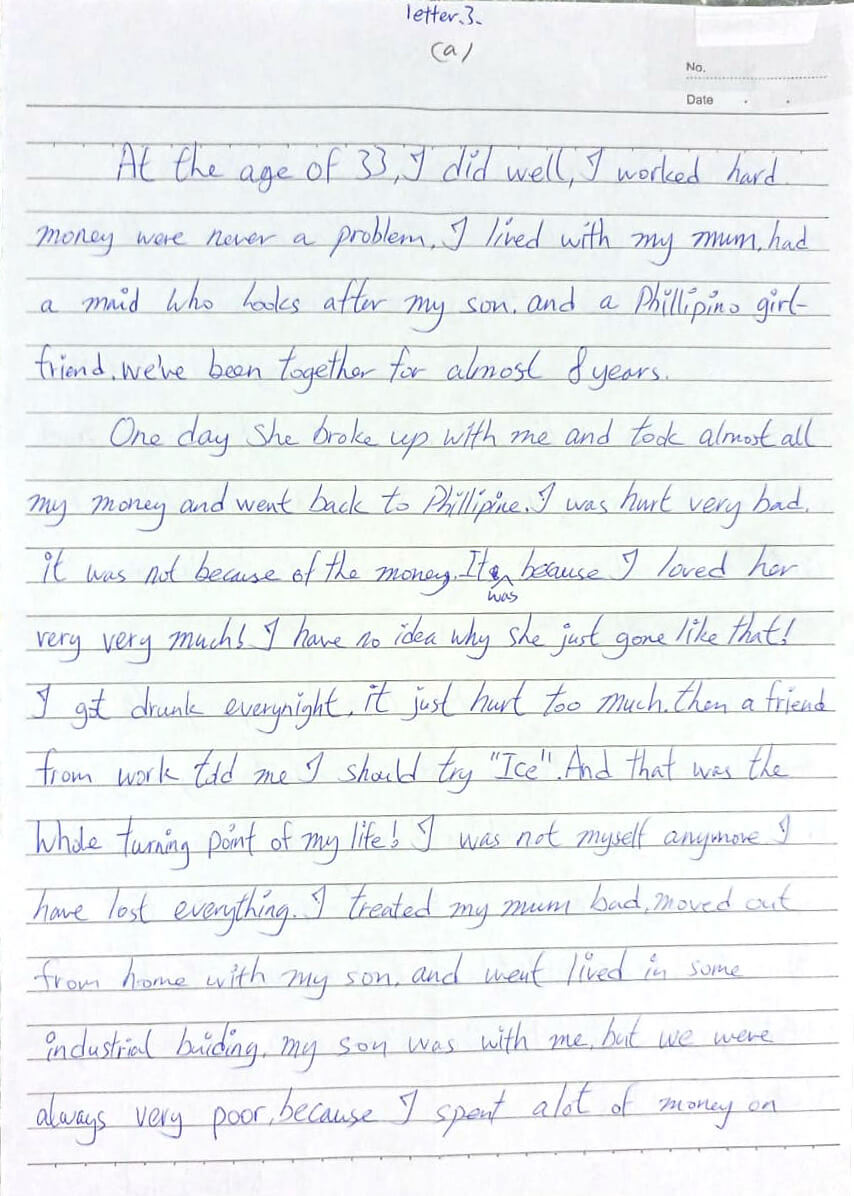 letter.3.
(a)
No.
Date . .
At the age of 33, I did well, I worked hard
money were never a problem. I lived with my mum, had
a maid who looks after my son, and a Phillipino girl-
friend. we've been together for almost 8 years.
One day she broke up with me and took almost all
my money and went back to Phillipine. I was hurt very bad,
it was not because of the money. It was because I loved her
very very much! I have no idea why she just gone like that!
I got drunk everynight, it just hurt too much. then a friend
from work told me I should try "Ice". And that was the
whole turning point of my life! I was not myself anymore I
have lost everything. I treated my mum bad, moved out
from home with my son, and went lived in some
industrial buiding, my son was with me, but we were
always very poor, because I spent alot of money on